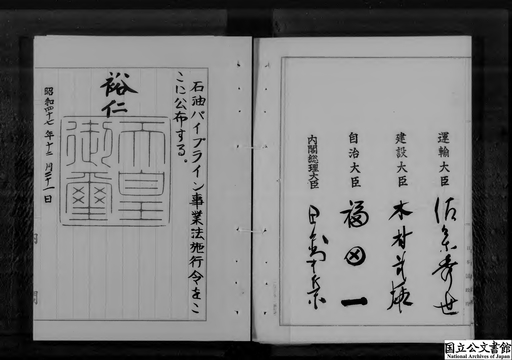 運輸大臣 佐々木秀世
建設大臣 木村武雄
自治大臣 福田一
内閣総理大臣 田中角榮
石油パイプライン事業法施行令をこ
こに公布する。
裕仁
天皇
御璽
昭和四十七年十二月二十一日
国立公文書館
National Archives of Japan